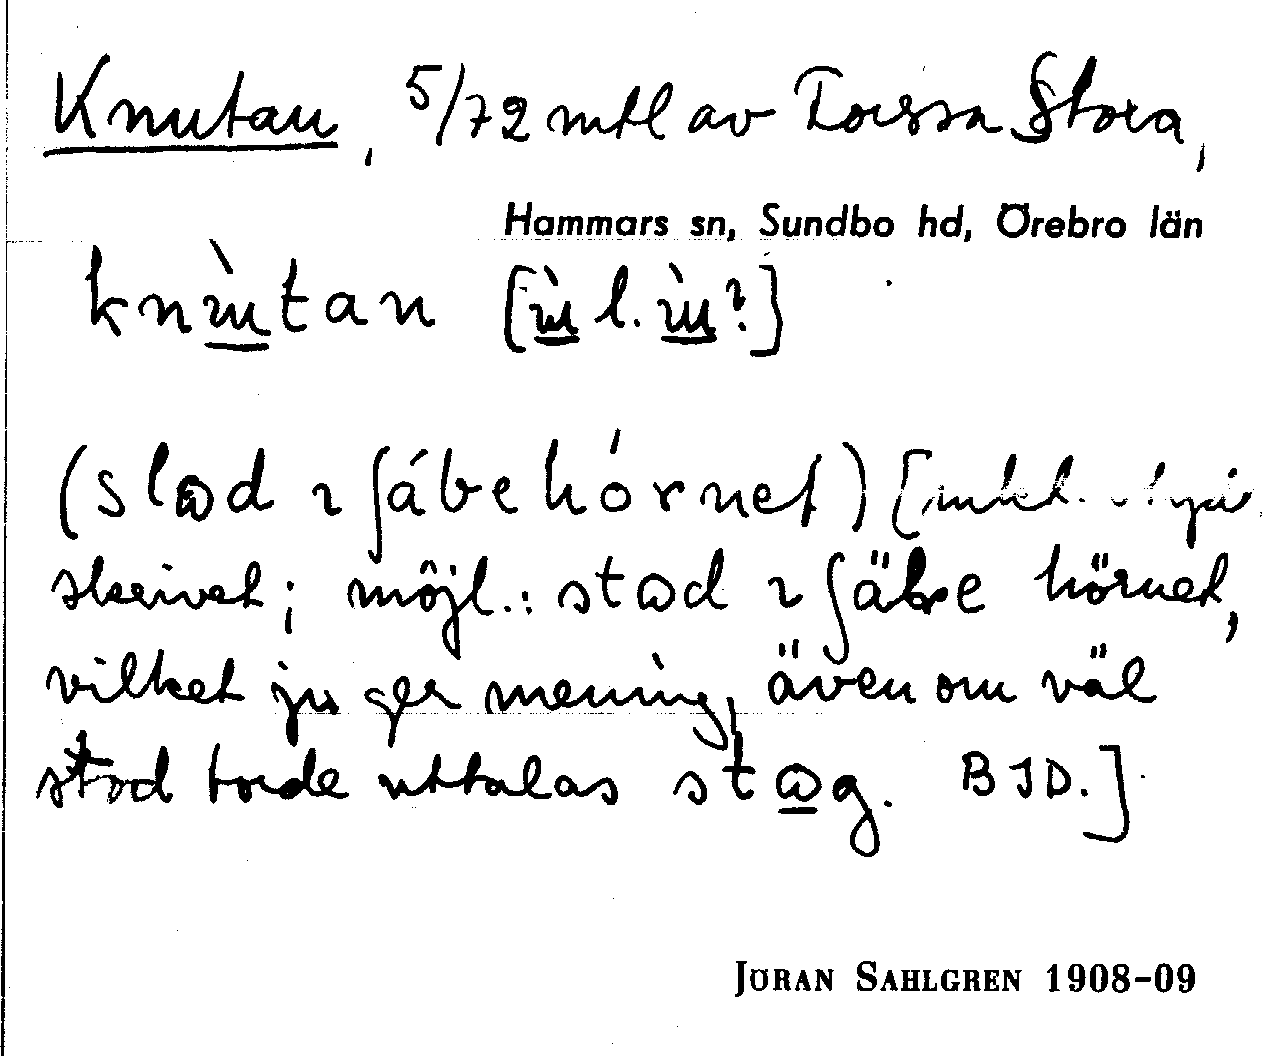 Knutan, 5/72 mtl av Torssa Stora,
Hammars sn, Sundbo hd, Örebro län
knùtan [ù l. ù̈?]
(slɷd ı ʃábe hórnet) [
skrivet; möjl.: stɷd ı ʃäbe hörnet,
vilket ju ger mening, även om väl
stod torde uttalas stɷg. BID.]
JÖRAN SAHLGREN 1908-09